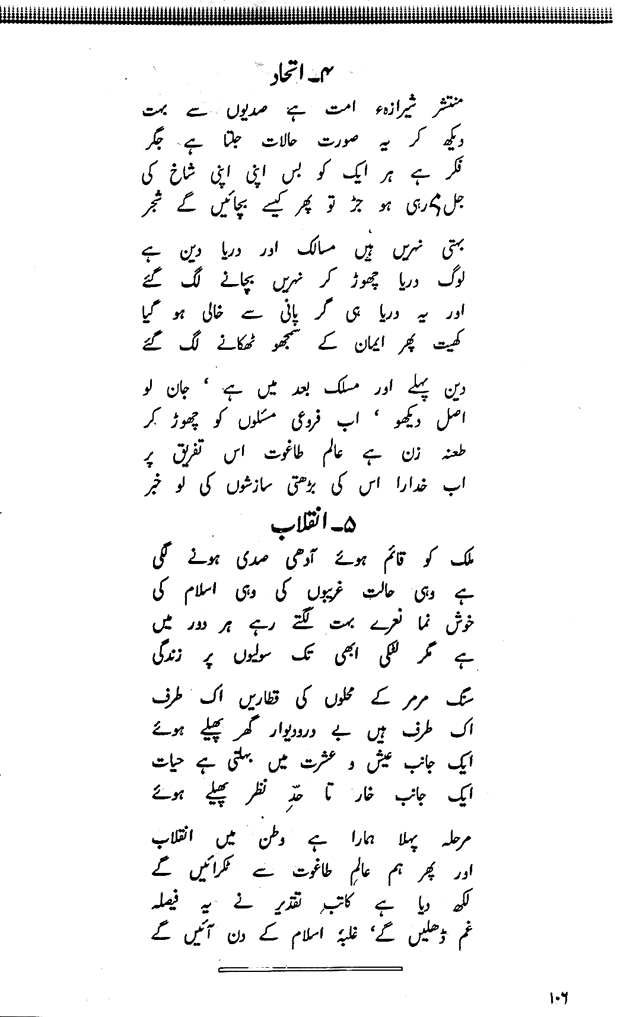 ۴۔ اتحاد
منتشر شیرازہء امت ہے صدیوں سے بہت
دیکھ کر یہ صورت حالات جلتا ہے جگر
فکر ہے ہر ایک کو بس اپنی اپنی شاخ کی
جل رہی ہو جڑ تو پھر کیسے بچائیں گے شجر
بہتی نہریں ہیں مسالک اور دریا دین ہے
لوگ دریا چھوڑ کر نہریں بچانے لگ گئے
اور یہ دریا ہی گر پانی سے خالی ہو گیا
کھیت پھر ایمان کے سمجھو ٹھکانے لگ گئے
دین پہلے اور مسلک بعد میں ہے ‘ جان لو
اصل دیکھو ‘ اب فروعی مسئلوں کو چھوڑ کر
طعنہ زن ہے عالم طاغوت اس تفریق پر
اب خدارا اس کی بڑھتی سازشوں کی لو خبر
۵۔ انقلاب
ملک کو قائم ہوئے آدھی صدی ہونے لگی
ہے وہی حالت غریبوں کی وہی اسلام کی
خوش نما نعرے بہت لگتے رہے ہر دور میں
ہے مگر لٹکی ابھی تک سولیوں پر زندگی
سنگ مرمر کے محلوں کی قطاریں اک طرف
اک طرف ہیں بے درودیوار گھر پھیلے ہوئے
ایک جانب عیش و عشرت میں بہلتی ہے حیات
ایک جانب خار تا حدِّ نظر پھیلے ہوئے
مرحلہ پہلا ہمارا ہے وطن میں انقلاب
اور پھر ہم عالمِ طاغوت سے ٹکرائیں گے
لکھ دیا ہے کاتبِ تقدیر نے یہ فیصلہ
غم ڈھلیں گے‘ غلبۂ اسلام کے دن آئیں گے
۱۰۶